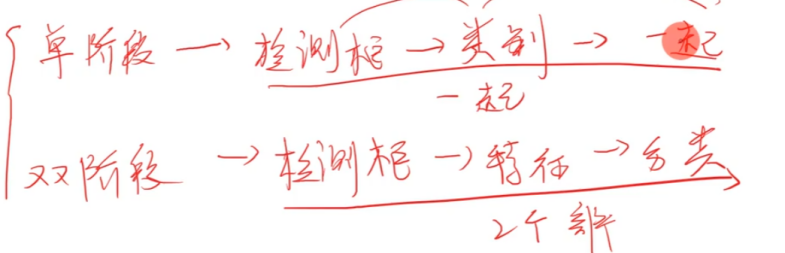 单阶段 → 检测框 → 类别 → 一起
一起
双阶段 → 检测框 → 特征 → 分类
2个